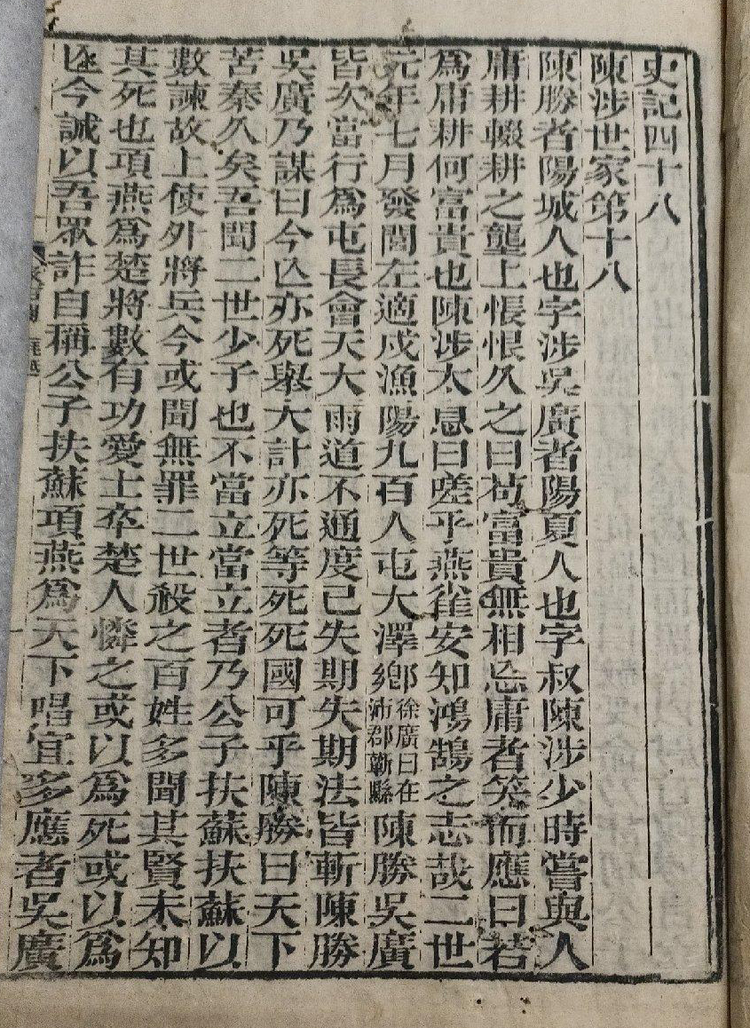 史記四十八
陳涉世家第十八
陳勝者陽城人也字涉吳廣者陽夏人也字叔陳涉少時嘗與人
庸耕輟耕之壟上悵恨久之曰苟富貴無相忘庸者笑而應曰若
爲庸耕何富貴也陳涉太息曰嗟乎燕雀安知鴻鵠之志哉二世
元年七月發閭左適戍漁陽九百人屯大澤鄉徐廣曰在沛郡蘄縣陳勝吳廣
皆次當行爲屯長會天大雨道不通度已失期失期法皆斬陳勝
吳廣乃謀曰今亾亦死舉大計亦死等死死國可乎陳勝曰天下
苦秦久矣吾聞二世少子也不當立當立者乃公子扶蘇扶蘇以
數諫故上使外將兵今或聞無罪二世殺之百姓多聞其賢未知
其死也項燕爲楚將數有功愛士卒楚人憐之或以爲死或以爲
亾今誠以吾眾詐自稱公子扶蘇項燕爲天下唱宜多應者吳廣